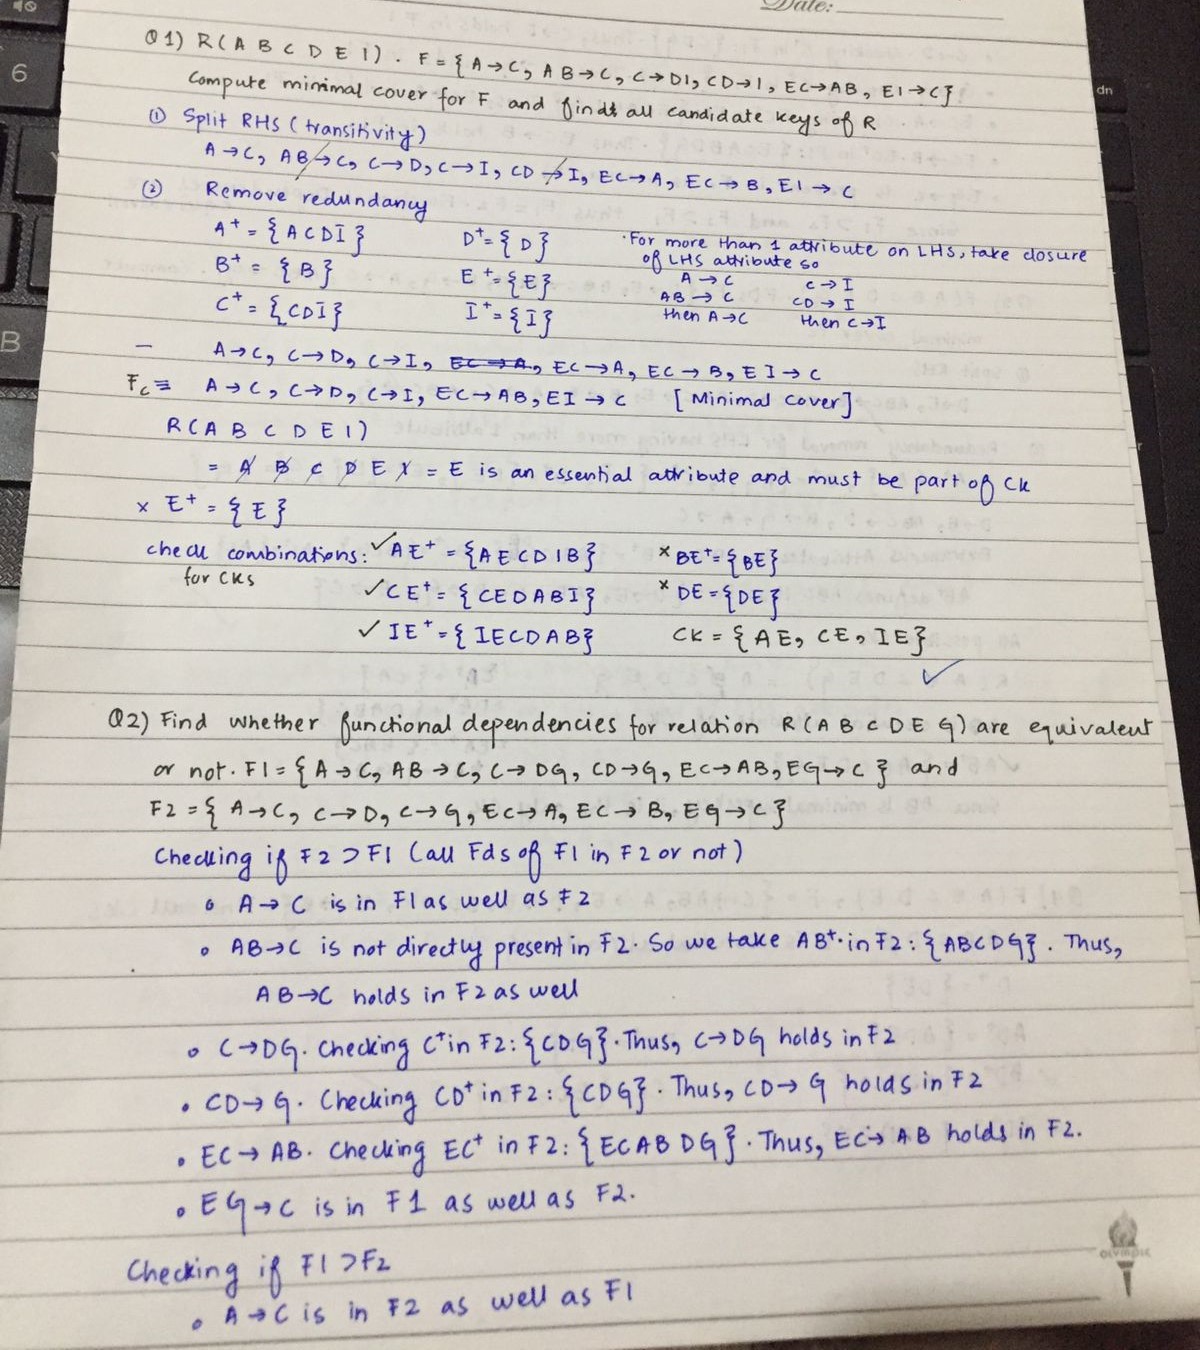 Date:
Q1) R(A B C D E I). F = { A→C, AB→C, C→DI, CD→I, EC→AB, EI→C}
Compute minimal cover for F and find all candidate keys of R
① Split RHS (transitivity)
A→C, AB→C, C→D, C→I, CD→I, EC→A, EC→B, EI→C
② Remove redundancy
A⁺ = {ACDI} D⁺ = {D} · For more than 1 attribute on LHS, take closure
of LHS attribute so
B⁺ = {B} E⁺ = {E} A→C C→I
AB→C CD→I
C⁺ = {CDI} I⁺ = {I} then A→C then C→I
– A→C, C→D, C→I, EC→A, EC→A, EC→B, EI→C
Fc ≡ A→C, C→D, C→I, EC→AB, EI→C [Minimal cover]
R(A B C D E I)
= A B C D E I = E is an essential attribute and must be part of CK
× E⁺ = {E}
check combinations: ✓ AE⁺ = {AECDIB} × BE⁺ = {BE}
for CKs
✓ CE⁺ = {CEDABI} × DE = {DE}
✓ IE⁺ = {IECDAB} CK = {AE, CE, IE}
✓
Q2) Find whether functional dependencies for relation R(A B C D E G) are equivalent
or not. F1 = { A→C, AB→C, C→DG, CD→G, EC→AB, EG→C } and
F2 = { A→C, C→D, C→G, EC→A, EC→B, EG→C}
Checking if F2 ⊃ F1 (all Fds of F1 in F2 or not)
∘ A→C is in F1 as well as F2
∘ AB→C is not directly present in F2. So we take AB⁺ in F2: {ABCDG}. Thus,
AB→C holds in F2 as well
∘ C→DG. Checking C⁺ in F2: {CDG}. Thus, C→DG holds in F2
• CD→G. Checking CD⁺ in F2: {CDG}. Thus, CD→G holds in F2
• EC→AB. Checking EC⁺ in F2: {ECABDG}. Thus, EC→AB holds in F2.
∘ EG→C is in F1 as well as F2.
Checking if F1 ⊃ F2
∘ A→C is in F2 as well as F1
OLYMPIC
6
B
dn